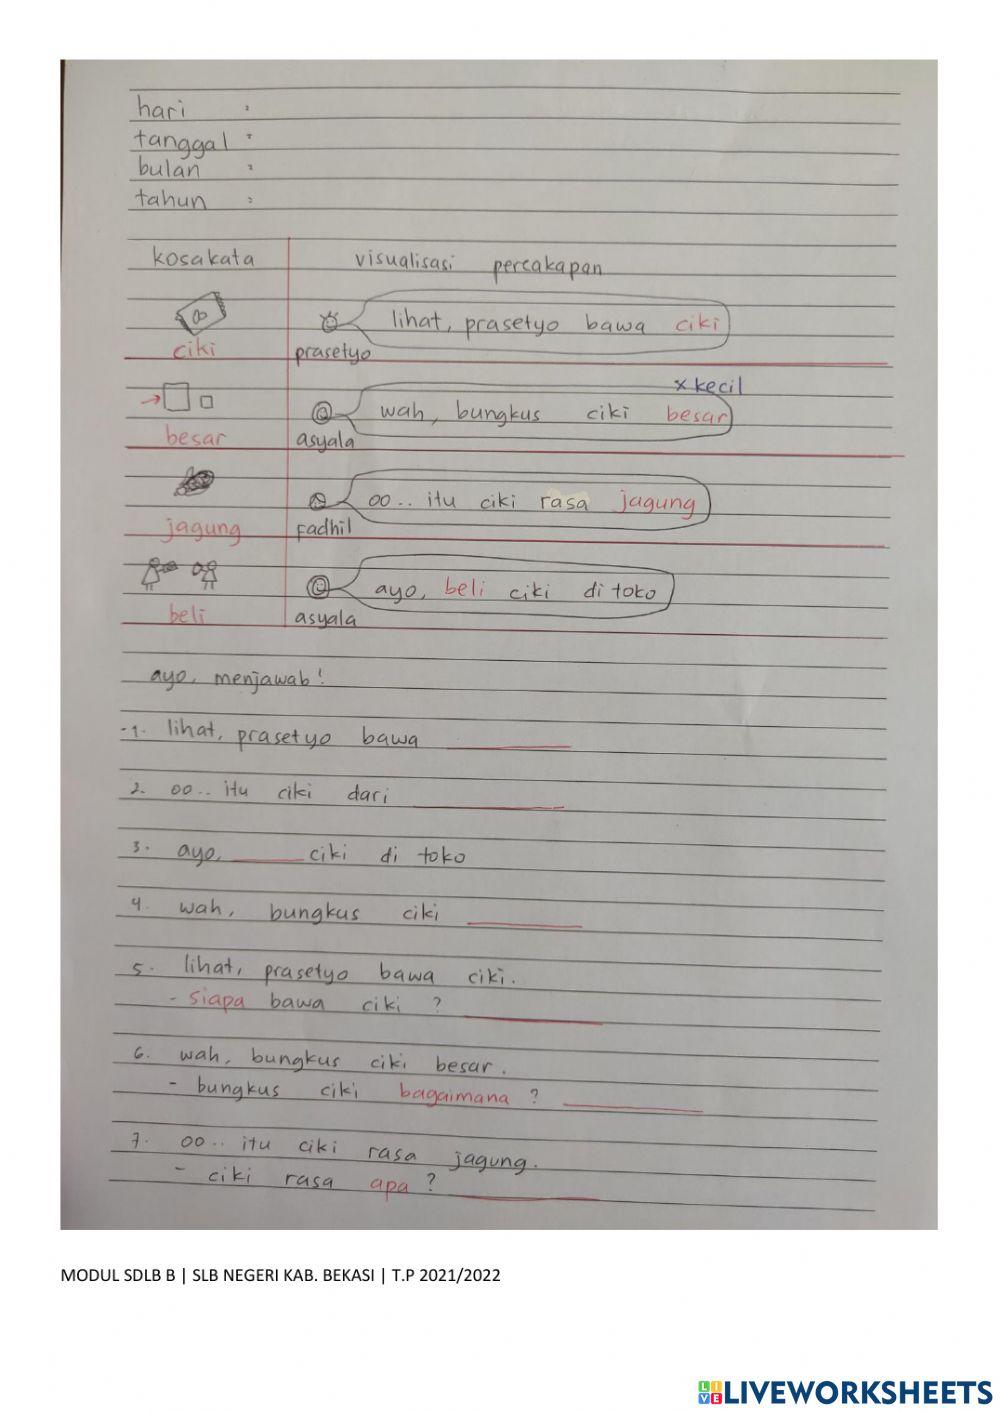 hari :
tanggal :
bulan :
tahun :
kosakata visualisasi percakapan
lihat, prasetyo bawa ciki
ciki prasetyo
x kecil
wah, bungkus ciki besar
besar asyala
oo.. itu ciki rasa jagung
jagung fadhil
ayo, beli ciki di toko
beli asyala
ayo, menjawab!
1. lihat, prasetyo bawa
2. oo.. itu ciki dari
3. ayo, ciki di toko
4. wah, bungkus ciki
5. lihat, prasetyo bawa ciki.
- siapa bawa ciki ?
6. wah, bungkus ciki besar.
- bungkus ciki bagaimana ?
7. oo.. itu ciki rasa jagung.
- ciki rasa apa ?
MODUL SDLB B | SLB NEGERI KAB. BEKASI | T.P 2021/2022
LIVE LIVEWORKSHEETS